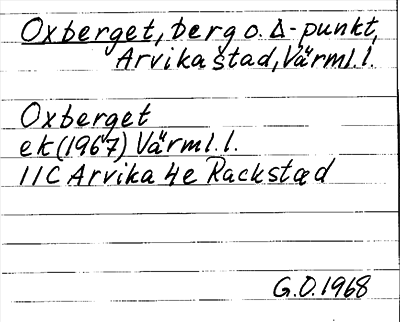 Oxberget, berg o. Δ-punkt,
Arvika stad, Värml. l.
Oxberget
ek (1967) Värml. l.
11C Arvika 4e Rackstad
G.O. 1968